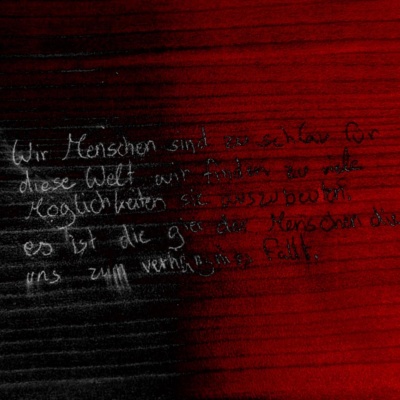 Wir Menschen sind zu schlau für
diese Welt, wir finden zu viele
Möglichkeiten sie auszubeuten
es ist die gier der Menschen die
uns zum verhängniss fällt.